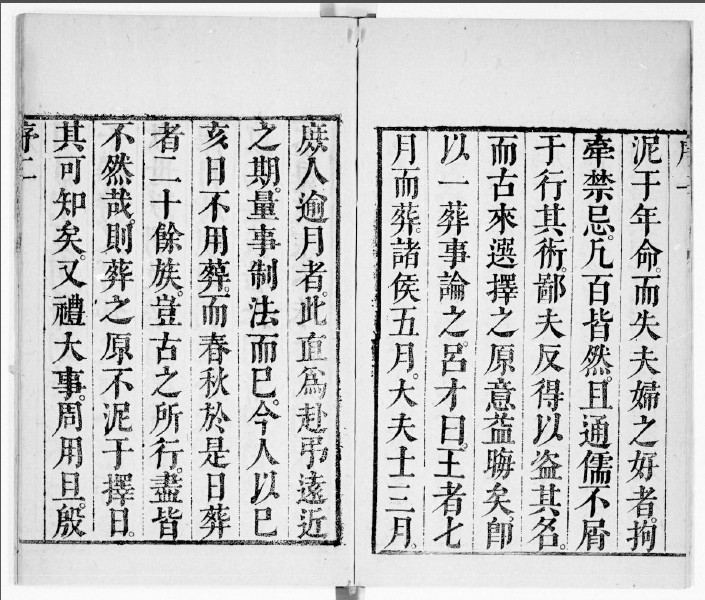 泥于年命。而失夫婦之好者。拘
牽禁忌。凢百皆然。且通儒不屑
于行其術。鄙夫反得以盗其名。
而古來選擇之原意葢晦矣。卽
以一葬事論之。呂才曰。王者七
月而葬。諸侯五月。大夫士三月。
庻人逾月者。此直爲赴弔遠近
之期。量事制法而已。今人以巳
亥日不用葬。而春秋於是日葬
者二十餘族。豈古之所行。盡皆
不然哉。則葬之原不泥于擇日。
其可知矣。又禮大事。周用旦。殷
序二